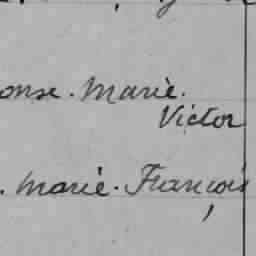 onse. Marie.
Victor
. Marie. François